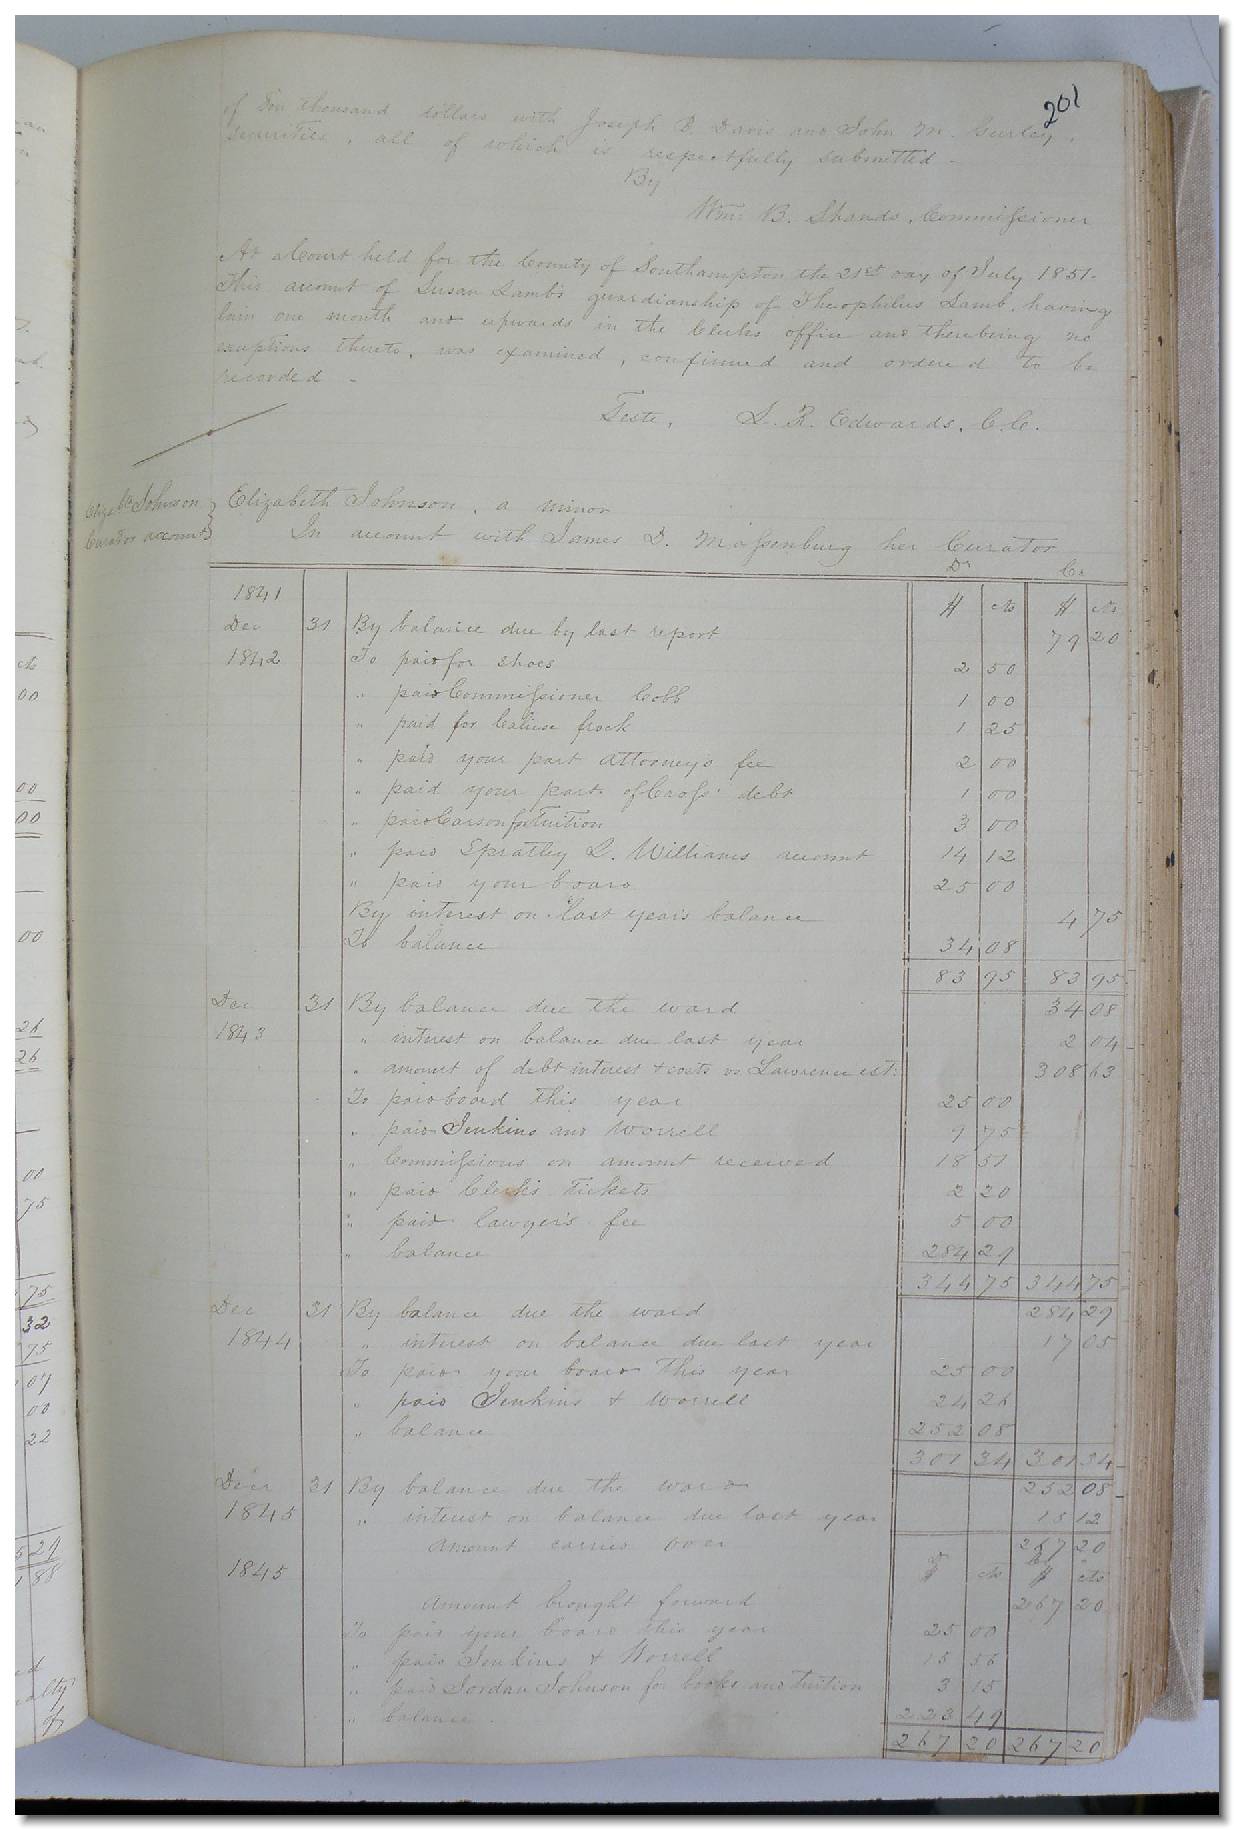 201
of Ten thousand dollars with Joseph B. Davis and John M. Gurley,
securities, all of which is respectfully submitted -
By
Wm. B. Shands, Commissioner
At a Court held for the County of Southampton the 21st day of July 1851.
This account of Susan Lamb's guardianship of Theophilus Lamb, having
lain one month and upwards in the Clerks office and there being no
exceptions thereto, was examined, confirmed and ordered to be
recorded -
Teste, L. R. Edwards, C.C.
Elizabeth Johnson, a minor
In account with James D. Massenburg her Curator
Elizabth Johnson
Curator account
Dr Cr
1841 $ cts $ cts
Dec 31 By balance due by last report 79 20
1842 To paid for shoes 2 50
" paid Commissioner Cobb 1 00
" paid for Calico frock 1 25
" paid your part attorneys fee 2 00
" paid your part of Cross' debt 1 00
" paid Carson for Tuition 3 00
" paid Spratley & Williams account 14 12
" paid your board 25 00
By interest on last years balance 4 75
To balance 34 08
83 95 83 95
Dec 31 By balance due the ward 34 08
1843 " interest on balance due last year 2 04
" amount of debt interest & costs vs Lawrence est: 308 63
To paid board this year 25 00
" paid Jenkins and Worrell 9 75
" Commissions on amount received 18 51
" paid Clerk's Tickets 2 20
" paid lawyer's fee 5 00
" balance 284 29
344 75 344 75
Dec 31 By balance due the ward 284 29
1844 " interest on balance due last year 17 05
To paid your board this year 25 00
" paid Jenkins & Worrell 24 26
" balance 252 08
301 34 301 34
Decr 31 By balance due the ward 252 08
1845 " interest on balance due last year 15 12
Amount carried over 267 20
1845 $ cts $ cts
Amount brought forward 267 20
To paid your board this year 25 00
" paid Jenkins & Worrell 15 56
" paid Jordan Johnson for books and tuition 3 15
" balance 223 49
267 20 267 20